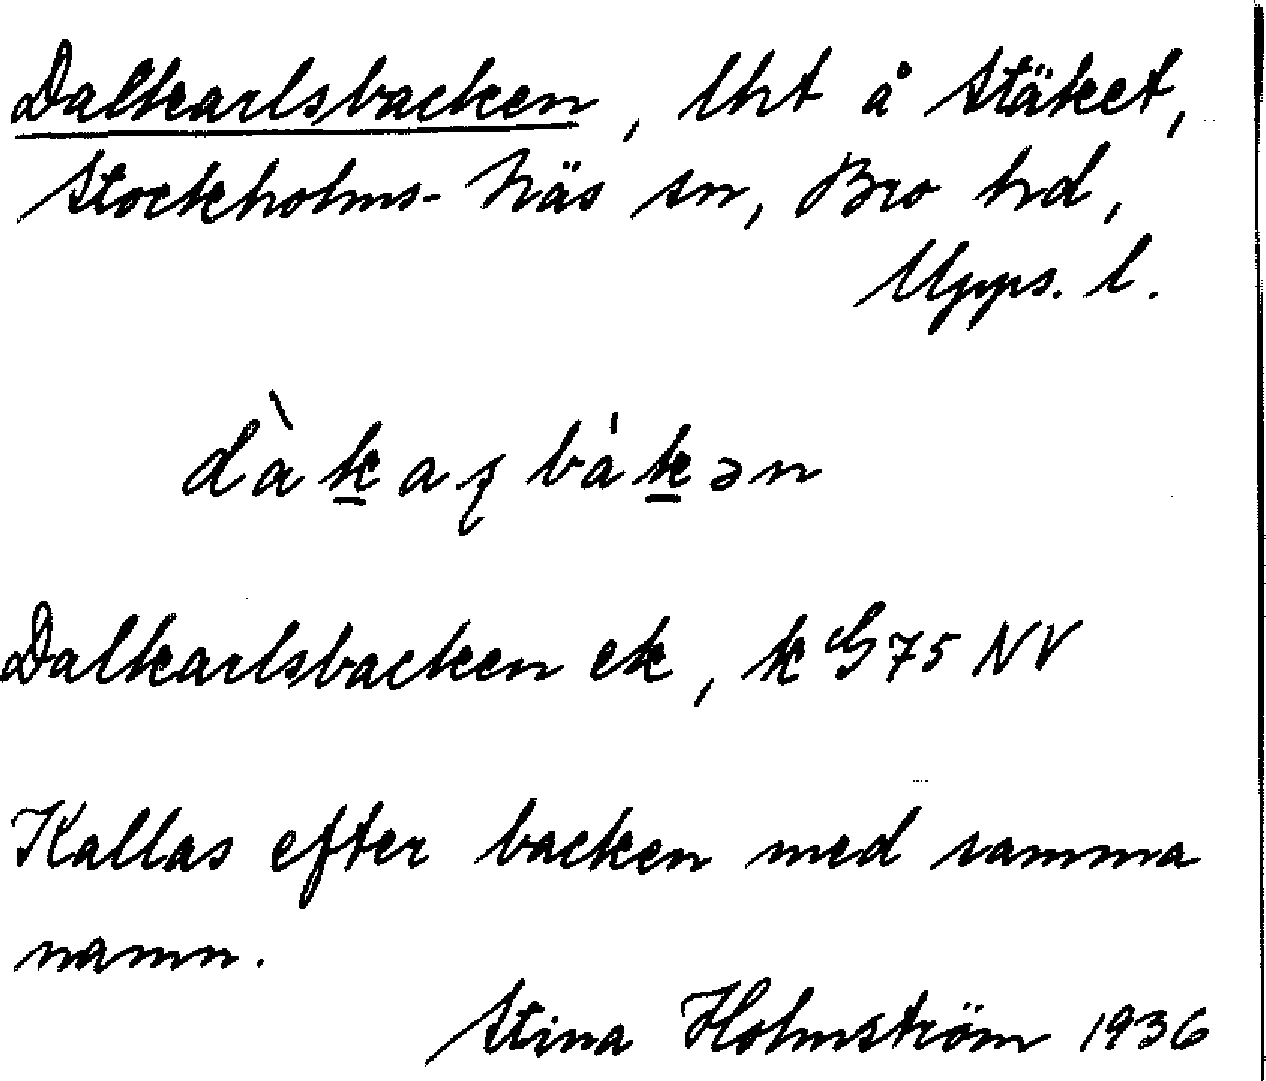 Dalkarlsbacken, lht å Stäket,
Stockholms-Näs sn, Bro hd,
Upps. l.
dàḵaʂbáḵən
Dalkarlsbacken ek, k G 75 NV
Kallas efter backen med samma
namn.
Stina Holmström 1936